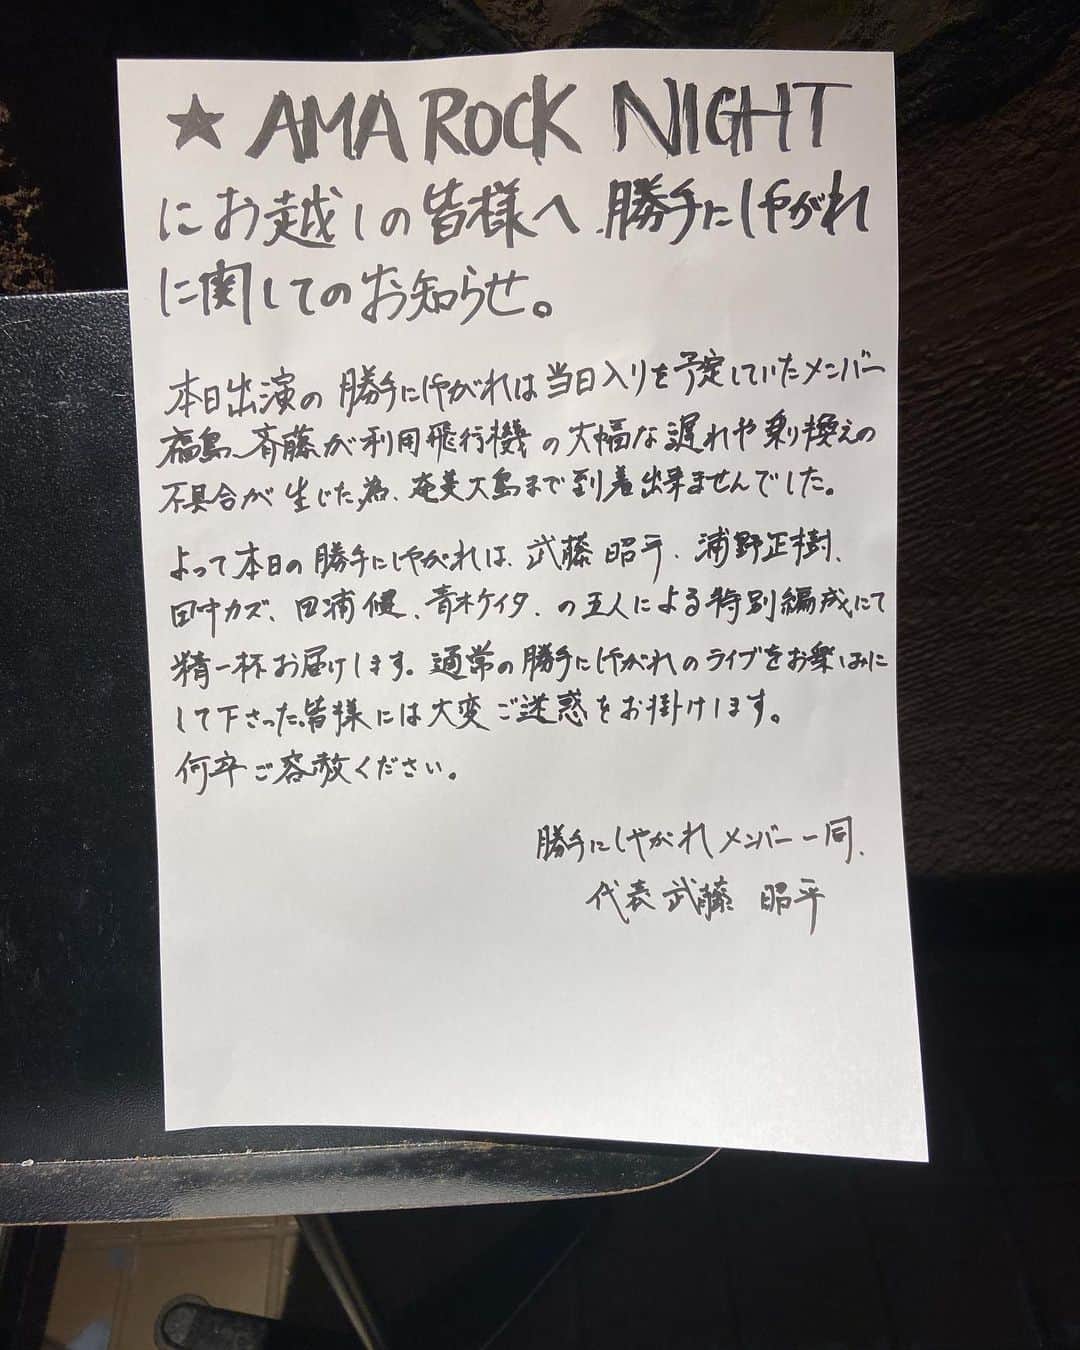 ★ AMA ROCK NIGHT
にお越しの皆様へ、勝手にしやがれ
に関してのお知らせ。
本日出演の勝手にしやがれは当日入りを予定していたメンバー
福島、斉藤が利用飛行機の大幅な遅れや乗り換えの
不具合が生じた為、奄美大島まで到着出来ませんでした。
よって本日の勝手にしやがれは、武藤昭平、浦野正樹、
田中カズ、田浦健、青木ケイタ、の五人による特別編成にて
精一杯お届けします。通常の勝手にしやがれのライブをお楽しみに
して下さった皆様には大変ご迷惑をお掛けします。
何卒ご容赦ください。
勝手にしやがれメンバー一同、
代表 武藤 昭平